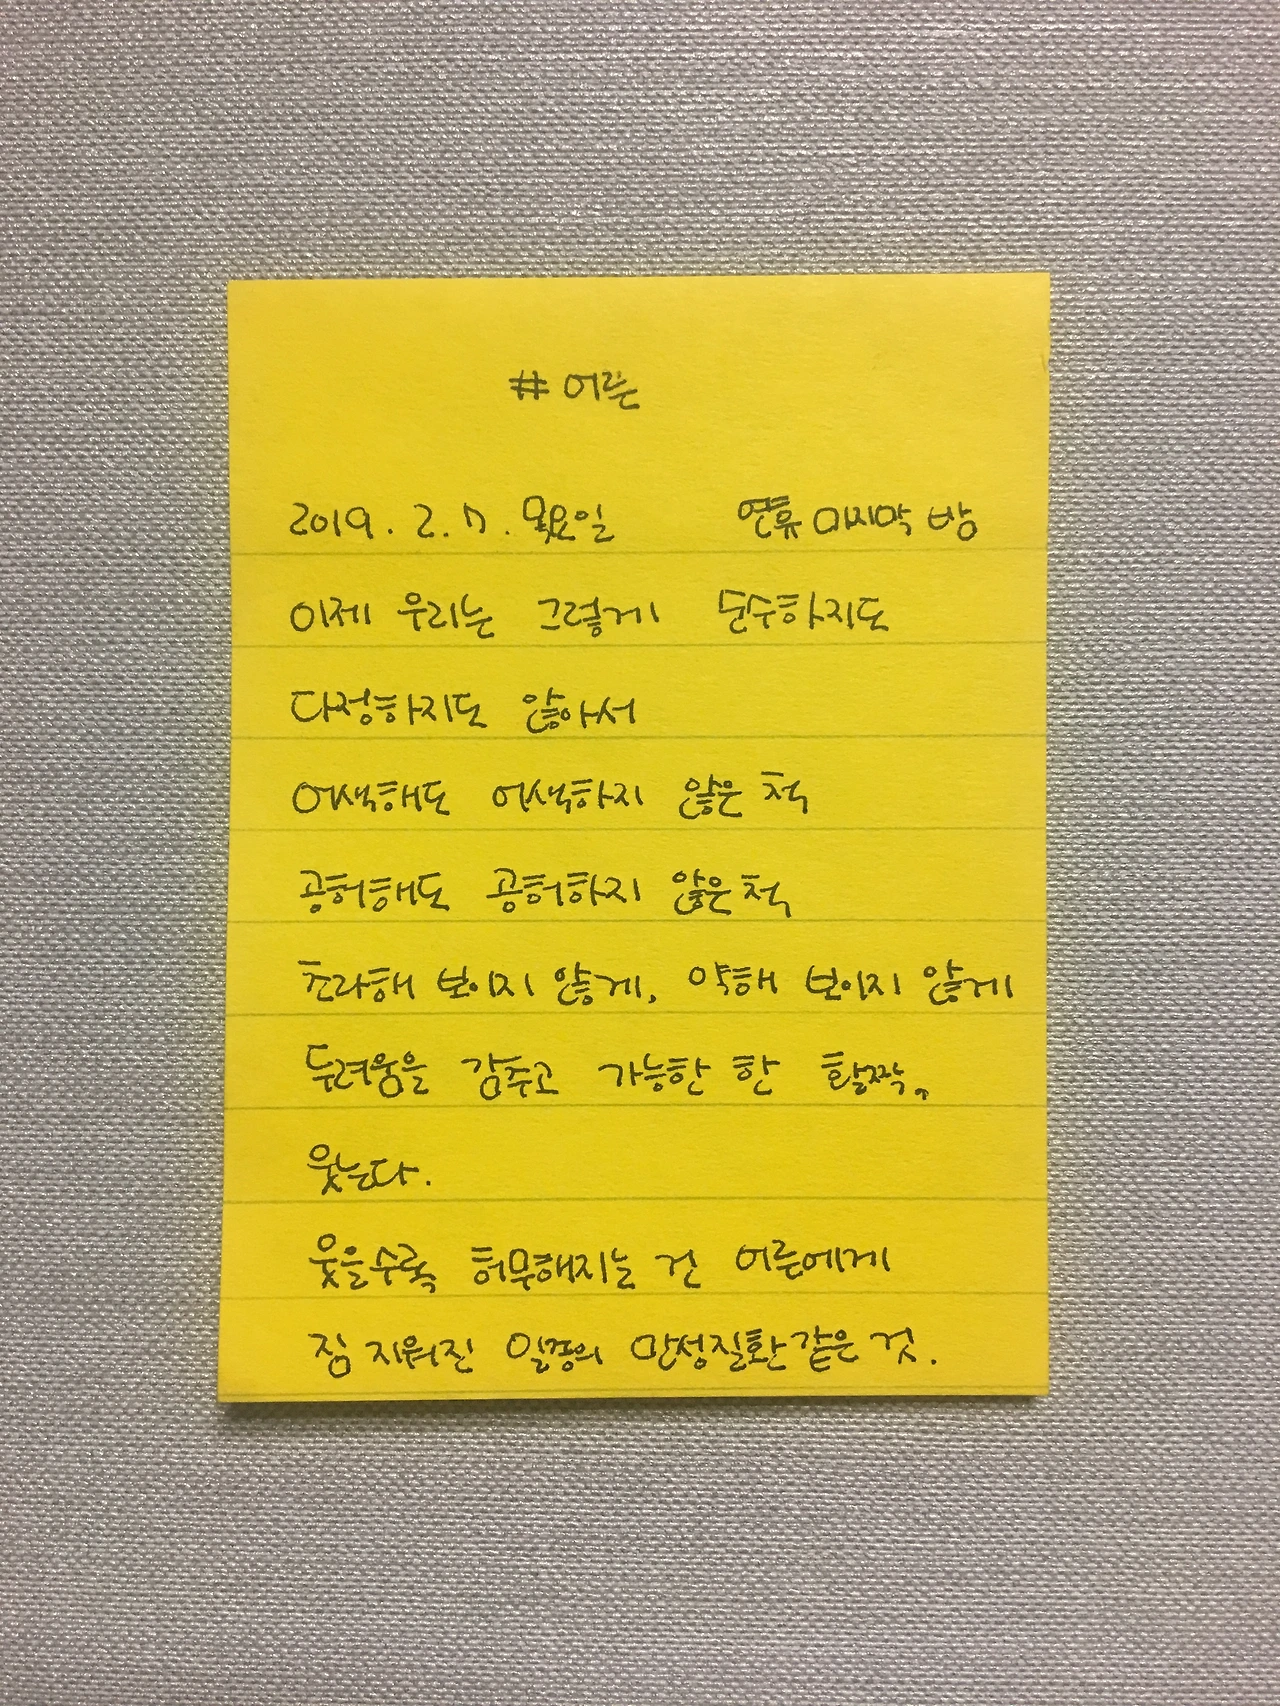 # 어른
2019. 2. 7. 목요일 연휴 마지막 밤
이제 우리는 그렇게 순수하지도
다정하지도 않아서
어색해도 어색하지 않은 척
공허해도 공허하지 않은 척
초라해 보이지 않게, 약해 보이지 않게
두려움을 감추고 가능한 한 활짝,
웃는다.
웃을수록 허무해지는 건 어른에게
짐 지워진 일종의 만성질환 같은 것.